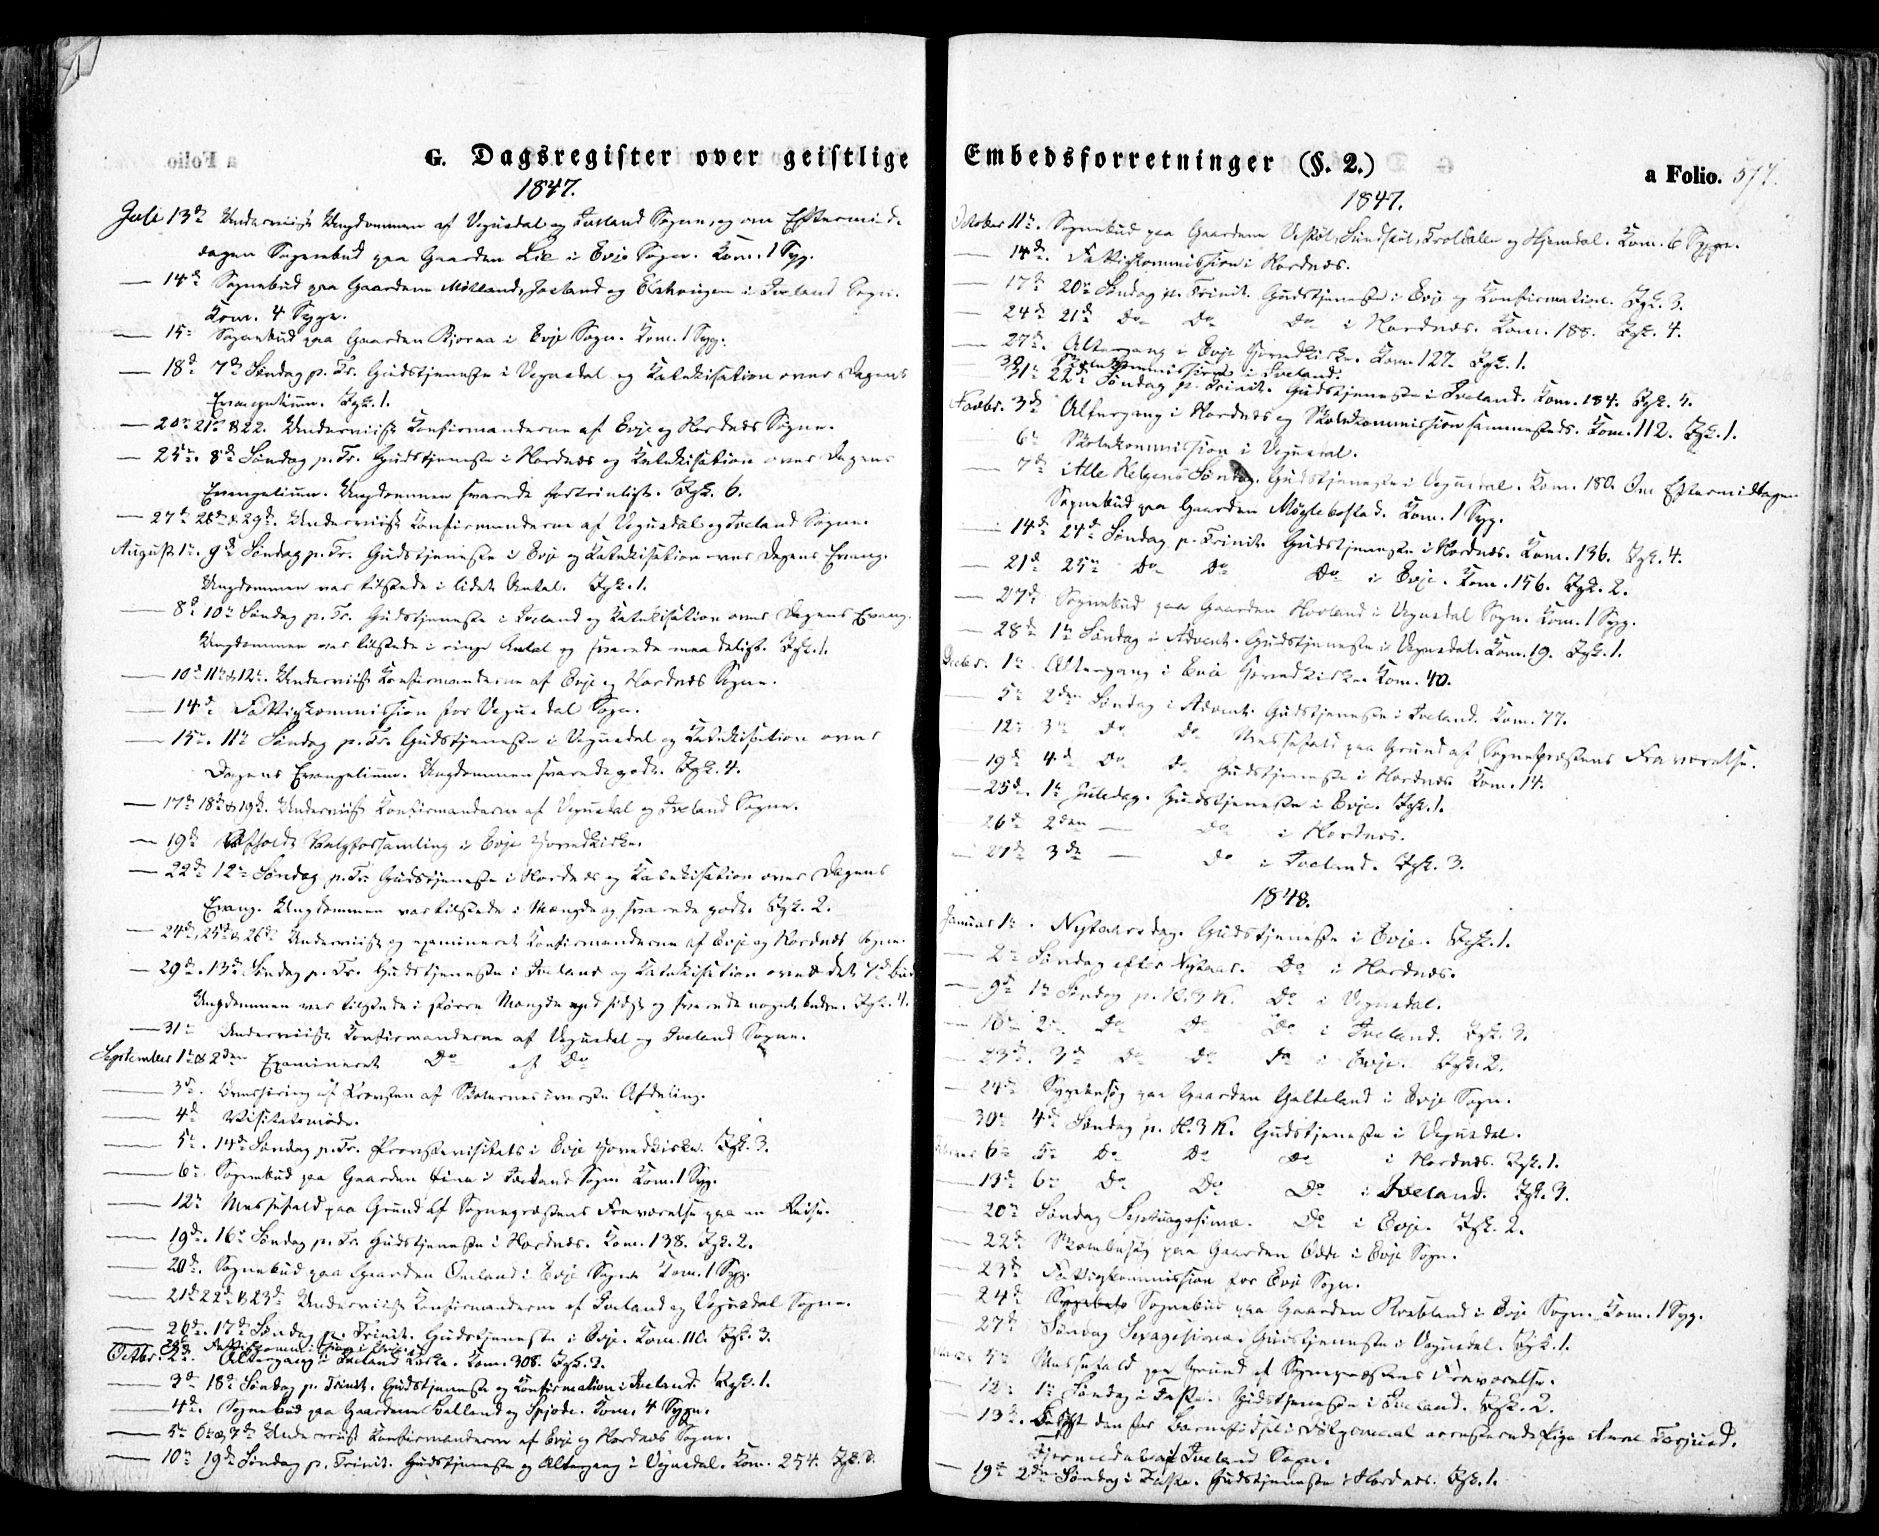 G. Dagsregister over geistlige
1847.
Juli 13de Underviist Ungdommen af Vegusdal og Iveland Sogne, og om Eftermid-
dagen Sognebud paa Gaarden Lie i Evje Sogn. Kom. 1 Syg.
— 14de Sognebud paa Gaardene Mølland, Frøland og i Iveland Sogn.
Kom. 4 Syge.
— 15de Sognebud paa Gaarden Bjoraa i Evje Sogn. Kom. 1 Syg.
— 18de 7de Søndag p. Tr. Gudstjeneste i Vegusdal og Katekisation over Dagens
Evangelium. Igk. 1.
— 20de 21de & 22. Underviist Konfirmanderne af Evje og Hordnæs Sogne.
— 25de. 8de Søndag p. Tr. Gudstjeneste i Hordnæs og Katekisation over Dagens
Evangelium. Ungdommen svarede fortrinligt. Igk. 6.
— 27de 28de & 29de. Underviist Konfirmanderne af Vegusdal og Iveland Sogne.
August 1ste. 9de Søndag p. Tr. Gudstjeneste i Evje og Katekisation over Dagens Evang.
Ungdommen var tilstede i lidet Antal. Igk. 1.
— 8de 10de Søndag p. Tr. Gudstjeneste i Iveland og Katekisation over Dagens Evang.
Ungdommen var tilstede i ringe Antal og svarede maadeligt. Igk. 1.
— 10de 11te & 12te. Underviist Konfirmanderne af Evje og Hordnæs Sogne.
— 14de Fattigkommission for Vegusdal Sogn.
— 15de. 11te Søndag p. Tr. Gudstjeneste i Vegusdal og Katekisation over
Dagens Evangelium. Ungdommen svarede godt. Igk. 4.
— 17de 18de & 19de. Underviist Konfirmanderne af Vegusdal og Iveland Sogne.
— 19de Afholdt Valgforsamling i Evje Hovedkirke.
— 22de 12te Søndag p. Tr. Gudstjeneste i Hordnæs og Katekisation over Dagens
Evang. Ungdommen var tilstede i Mængde og svarede godt. Igk. 2.
— 24de, 25de & 26de Underviist og examineret Konfirmanderne af Evje og Hordnæs Sogne.
— 29de. 13de Søndag p. Tr. Gudstjeneste i Iveland og Katekisation over det 4de Bud
Ungdommen var tilstede i større Mængde end sidst og svarede noget bedre. Igk. 4.
— 31te Underviist Konfirmanderne af Vegusdal og Iveland Sogne.
September 1ste & 2den Examineret Do af Do
— 3de. Overhøring af Provsten af Skolernes øverste Afdeling.
— 4de Visitatsmøde.
— 5te. 14de Søndag p. Tr. Provstevisitats i Evje Hovedkirke. Igk. 3.
— 6te Sognebud paa Gaarden i Iveland Sogn. Kom. 1 Syg.
— 12te Messefald paa Grund af Sognepræstens Fraværelse paa en Reise.
— 19de. 16de Søndag p. Tr. Gudstjeneste i Hordnæs. Kom. 138. Igk. 2.
— 20de. Sognebud paa Gaarden Omland i Evje Sogn. Kom. 1 Syg.
— 21de 22de & 23de Underviist Konfirmanderne af Iveland og Vegusdal Sogne.
— 26de. 17de Søndag p. Trinit. Gudstjeneste i Evje. Kom. 110. Igk. 3.
Fattigkommission i
Octbr. 2de. Altergang i Iveland Kirke. Kom. 308. Igk. 2.
— 3de 18de Søndag p. Trinit. Gudstjeneste og Konfirmation i Iveland. Igk. 1.
— 4de. Sognebud paa Gaardene og Kom. 4 Syge.
— 5te 6te og 7de Underviist Konfirmanderne af Evje og Hordnæs Sogne.
— 10de 19de Søndag p. Trinit. Gudstjeneste og Altergang i Vegusdal. Kom. 254. Igk. 3.
Embedsforretninger (§. 2.)
a Folio. 577.
1847.
October 11te. Sognebud paa Gaardene Sundskøl, og Hjemdal. Kom. 6 Syge.
— 14de. Fattigkommission i Hordnæs.
— 17de 20de Søndag p. Trinit. Gudstjeneste i Evje og Konfirmation. Igk. 3.
— 24de 21de Do Do Do i Hordnæs. Kom. 188. Igk. 4.
— 27de. Altergang i Evje Hovedkirke. Kom. 127. Igk. 1.
30 Skolekommission i Iveland.
31te 22de Søndag p. Trinit. Gudstjeneste i Iveland. Kom. 184. Igk. 4.
Novbr. 3de Altergang i Hordnæs og Skolekommission sammesteds. Kom. 112. Igk. 1.
6te Skolekommission i Vegusdal.
— 7de Alle Helgens Søndag. Gudstjeneste i Vegusdal. Kom. 180. Om Eftermiddagen
Sognebud paa Gaarden Møglebostad. Kom. 1 Syg.
— 14de 24de Søndag p. Trinit. Gudstjeneste i Hordnæs. Kom. 136. Igk. 4.
— 21de 25de Do Do Do i Evje. Kom. 156. Igk. 2.
— 27de Sognebud paa Gaarden Hovland i Vegusdal Sogn. Kom. 1 Syg.
— 28de 1ste Søndag i Advent. Gudstjeneste i Vegusdal. Kom. 19. Igk. 1.
Decbr. 1ste Altergang i Evje Hovedkirke. Kom. 40.
— 5te 2den Søndag i Advent. Gudstjeneste i Iveland. Kom. 77.
12te 3de do do Messefald paa Grund af Sognepræstens Fraværelse.
19de 4de Do do Gudstjeneste i Hordnæs. Kom. 14.
— 25de. 1ste Juledag. Gudstjeneste i Evje. Igk. 1.
26de 2den — Do i Hordnæs.
— 27de 3de — Do i Iveland. Igk. 3.
1848.
Januar 1ste. Nytaarsdag. Gudstjeneste i Evje. Igk. 1.
— 2den Søndag efter Nytaar. Do i Hordnæs.
— 9de 1ste Søndag p. H. 3 K. Do i Vegusdal.
— 16de 2den Do Do Do i Iveland. Igk. 3.
— 23de. 3de Do Do Do i Evje. Igk. 2.
— 24de Sygebesøg paa Gaarden Galteland i Evje Sogn.
— 30te 4de Søndag p. H. 3 K. Gudstjeneste i Vegusdal.
Februar 6te 5te Do Do Do i Hordnæs. Igk. 1.
— 13de 6te Do Do Do i Iveland. Igk. 3.
— 20de Søndag Septuagesima. Do i Evje. Igk. 2.
— 22de paa Gaarden i Evje Sogn.
— 23de Fattigkommission for Evje Sogn.
— 24de Sognebud paa Gaarden i Evje Sogn. Kom. 1 Syg.
— 27de Søndag Sexagesima. Gudstjeneste i Vegusdal. Igk. 1.
Marts 5te Messefald paa Grund af Sognepræstens Fraværelse.
— 12te 1ste Søndag i Faste. Gudstjeneste i Iveland. Igk. 2.
— 13de. Besøgt den for Barnefødsel i Dølgsmaal arresterede Pige
af Iveland Sogn.
— 19de 2den Søndag i Faste. Gudstjeneste i Hordnæs. Igk. 1.